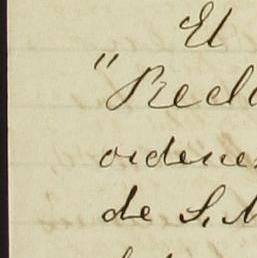 El
"Recl
ordene
de S. M